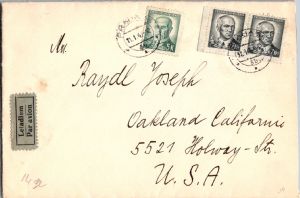 Mr.
Raydl Joseph
Oakland California
5521 Holway-Str.
U. S. A.
Letadlem
Par avion